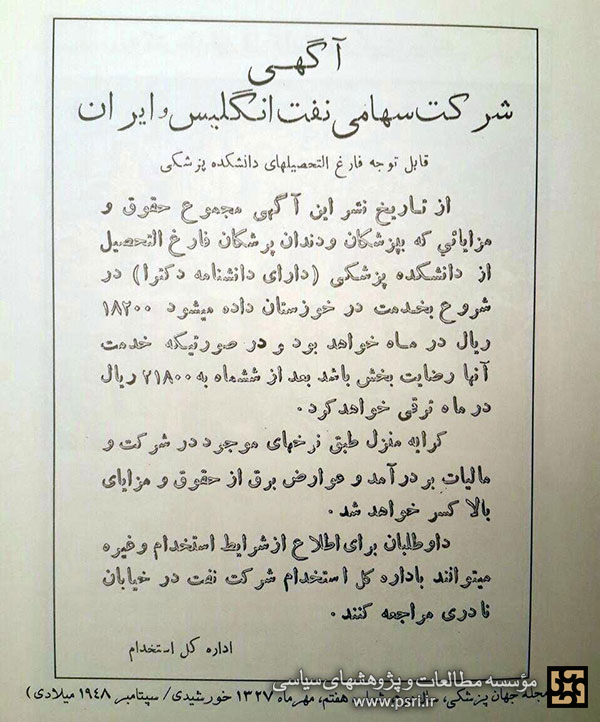 آگهی
شرکت سهامی نفت انگلیس و ایران
قابل توجه فارغ التحصیلهای دانشکده پزشکی
از تاریخ نشر این آگهی مجموع حقوق و
مزایائی که بپزشکان و دندان پزشکان فارغ التحصیل
از دانشکده پزشکی (دارای دانشنامه دکترا) در
شروع بخدمت در خوزستان داده میشود ۱۸۲۰۰
ریال در ماه خواهد بود و در صورتیکه خدمت
آنها رضایت بخش باشد بعد از ششماه به ۲۱۸۰۰ ریال
در ماه ترقی خواهد کرد.
کرایه منزل طبق نرخهای موجود در شرکت و
مالیات بر درآمد و عوارض برق از حقوق و مزایای
بالا کسر خواهد شد.
داوطلبان برای اطلاع از شرایط استخدام و غیره
میتوانند باداره کل استخدام شرکت نفت در خیابان
نادری مراجعه کنند.
اداره کل استخدام
مؤسسه مطالعات و پژوهشهای سیاسی
مجله جهان پزشکی، هفتم، مهرماه ۱۳۲۷ خورشیدی/ سپتامبر ۱۹۴۸ میلادی)
www.psri.ir